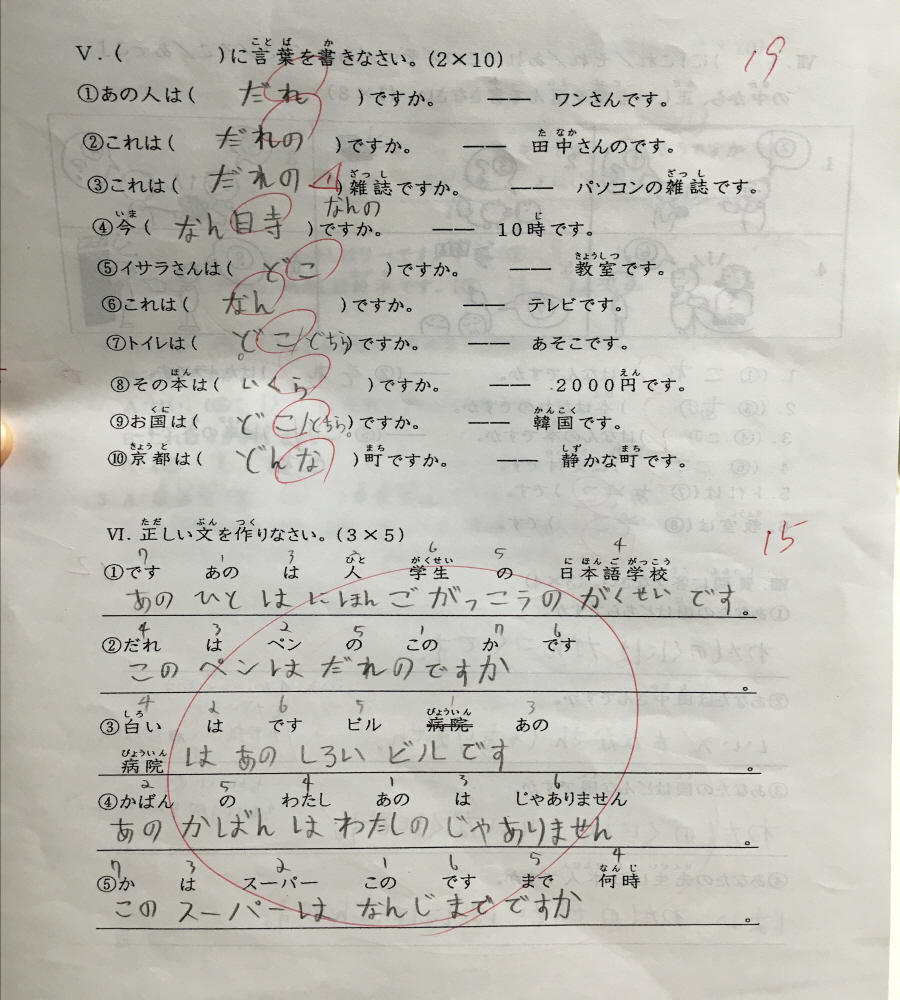 Ⅴ.( )に言葉を書きなさい。(2×10) 19
①あの人は( だれ )ですか。 —— ワンさんです。
②これは( だれの )ですか。 —— 田中さんのです。
③これは( だれの )雑誌ですか。 —— パソコンの雑誌です。
なんの
④今( なん時 )ですか。 —— 10時です。
⑤イサラさんは( どこ )ですか。 —— 教室です。
⑥これは( なん )ですか。 —— テレビです。
⑦トイレは( どこ/どちら)ですか。 —— あそこです。
⑧その本は( いくら )ですか。 —— 2000円です。
⑨お国は( どこ/どちら)ですか。 —— 韓国です。
⑩京都は( どんな )町ですか。 —— 静かな町です。
Ⅵ.正しい文を作りなさい。(3×5) 15
7 1 3 6 5 4
①です あの は 人 学生 の 日本語学校
あの ひと は にほん ご がっこうの がくせい です。
4 3 2 5 1 7 6
②だれ は ペン の この か です
この ペンは だれのですか。
4 2 6 5 1 3
③白い は です ビル 病院 あの
病院 は あの しろい ビル です。
2 5 4 1 3 6
④かばん の わたし あの は じゃありません
あの かばん は わたしの じゃありません。
7 3 2 1 6 5 4
⑤か は スーパー この です まで 何時
この スーパーは なんじまでですか。